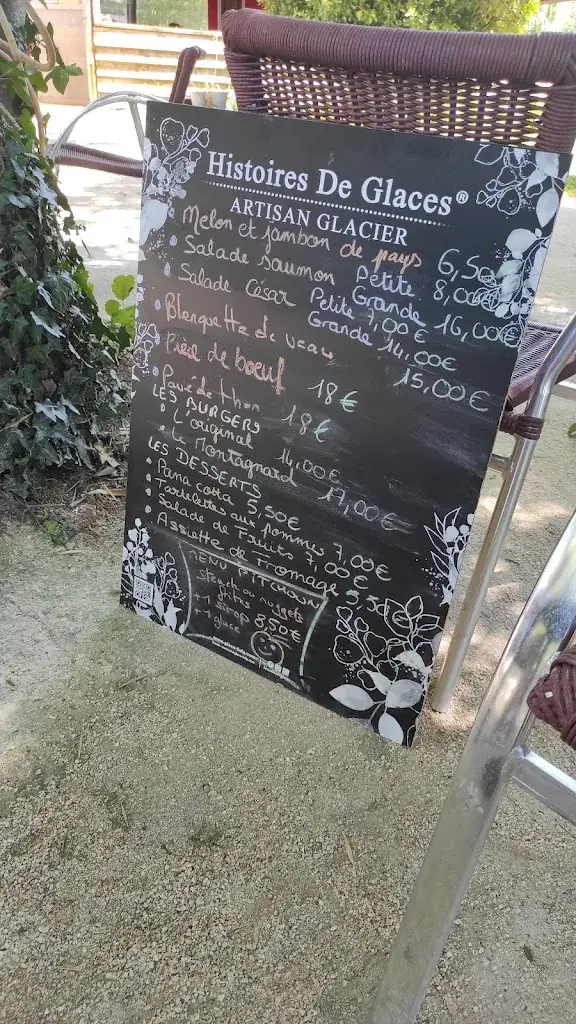 Histoires De Glaces®
ARTISAN GLACIER
Melon et jambon de pays 6,50
Salade saumon Petite 8,00€
Grande 16,00€
Salade César Petite 7,00€
Grande 14,00€
Blanquette de veau 15,00€
Pièce de boeuf 18€
Pavé de thon 18€
LES BURGERS
• L'original 14,00€
• Le Montagnard 17,00€
LES DESSERTS
• Pana cotta 5,50€
• Tartelettes aux pommes 7,00€
• Salade de Fruits 7,00€
• Assiette de Fromage 5,50€
MENU PITCHOUN
steach ou nuggets
frites
+ 1 sirop 8,50€
+ 1 glace